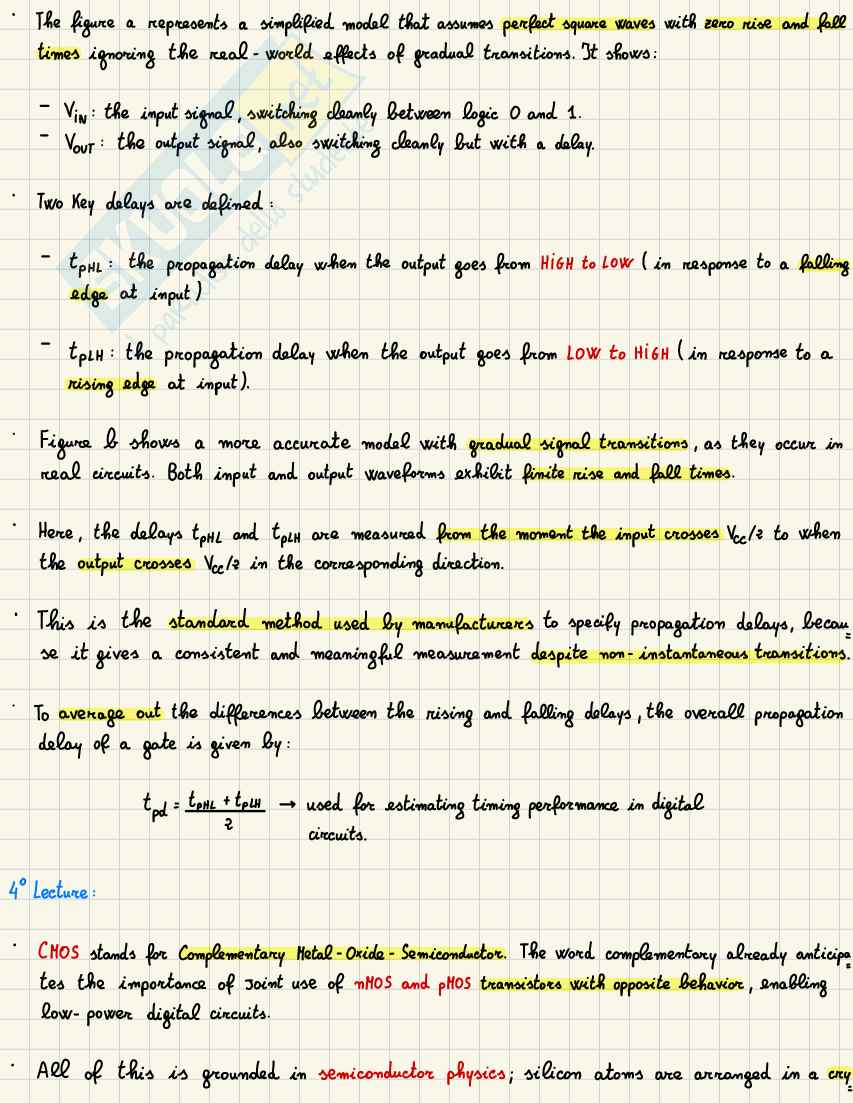 · The figure a represents a simplified model that assumes perfect square waves with zero rise and fall
times ignoring the real-world effects of gradual transitions. It shows:
- VIN: the input signal, switching cleanly between logic 0 and 1.
- VOUT: the output signal, also switching cleanly but with a delay.
· Two Key delays are defined:
- tpHL: the propagation delay when the output goes from HIGH to LOW (in response to a falling
edge at input)
- tpLH: the propagation delay when the output goes from LOW to HIGH (in response to a
rising edge at input).
· Figure b shows a more accurate model with gradual signal transitions, as they occur in
real circuits. Both input and output waveforms exhibit finite rise and fall times.
· Here, the delays tpHL and tpLH are measured from the moment the input crosses Vcc/2 to when
the output crosses Vcc/2 in the corresponding direction.
· This is the standard method used by manufacturers to specify propagation delays, becau=
se it gives a consistent and meaningful measurement despite non-instantaneous transitions.
· To average out the differences between the rising and falling delays, the overall propagation
delay of a gate is given by:
tpd = (tpHL + tpLH)/2 → used for estimating timing performance in digital
circuits.
4° Lecture:
· CMOS stands for Complementary Metal-Oxide-Semiconductor. The word complementary already anticipa=
tes the importance of Joint use of nMOS and pMOS transistors with opposite behavior, enabling
low-power digital circuits.
· All of this is grounded in semiconductor physics; silicon atoms are arranged in a cry=
SKUOLA.net